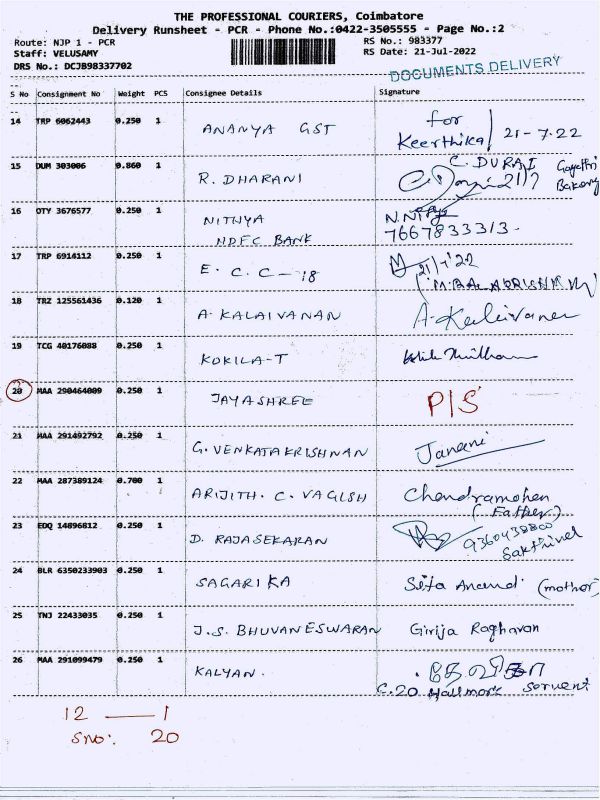 THE PROFESSIONAL COURIERS, Coimbatore
Delivery Runsheet - PCR - Phone No.:0422-3505555 - Page No.:2
Route: NJP 1 - PCR
RS No.: 983377
Staff: VELUSAMY
RS Date: 21-Jul-2022
DRS No.: DCJB98337702
DOCUMENTS DELIVERY
S No Consignment No Weight PCS Consignee Details Signature
14 TRP 6062443 0.250 1 ANANYA GST for Keerthika 21-7-22
15 DUM 303006 0.860 1 R. DHARANI C. DURAI 21/7 Gayathri Bakery
16 OTY 3676577 0.250 1 NITHYA HDFC BANK 7667833313
17 TRP 6914112 0.250 1 E. C. C - 18
18 TRZ 125561436 0.120 1 A. KALAIVANAN A. Kalaivanan
19 TCG 40176088 0.250 1 KOKILA-T
20 MAA 290464009 0.250 1 JAYASHREE P/S
21 MAA 291492792 0.250 1 G. VENKATAKRISHNAN Janani
22 MAA 287389124 0.700 1 ARIJITH. C. VAGISH Chandramohan (Father)
23 EDQ 14896812 0.250 1 D. RAJASEKARAN 9360438800 Sakthivel
24 BLR 6350233903 0.250 1 SAGARIKA Sita Anand (mother)
25 TNJ 22433035 0.250 1 J.S. BHUVANESWARAN Girija Raghavan
26 MAA 291099479 0.250 1 KALYAN. C.20 Hallmark Servent
12 — 1
Sno: 20